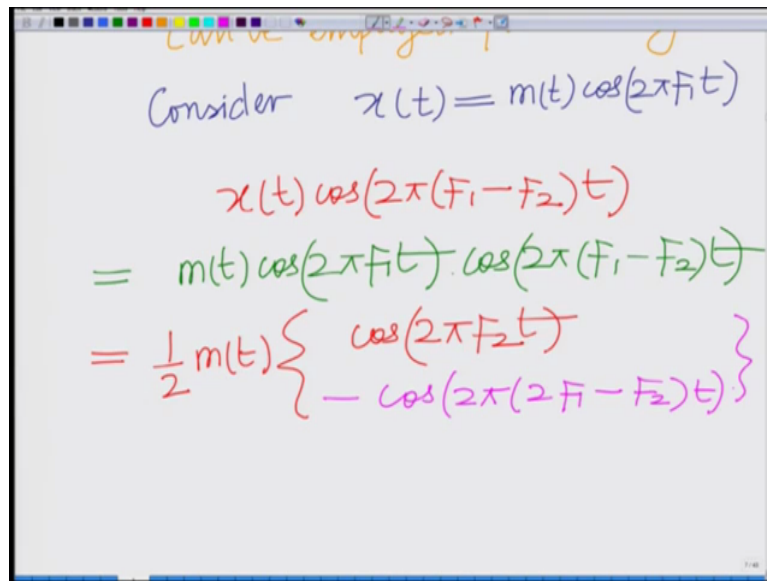 can be employed
Consider x(t) = m(t) cos(2πF₁t)
x(t) cos(2π(F₁ − F₂)t)
= m(t) cos(2πF₁t) . cos(2π(F₁ − F₂)t)
= 1/2 m(t) { cos(2πF₂t)
− cos(2π(2F₁ − F₂)t) }